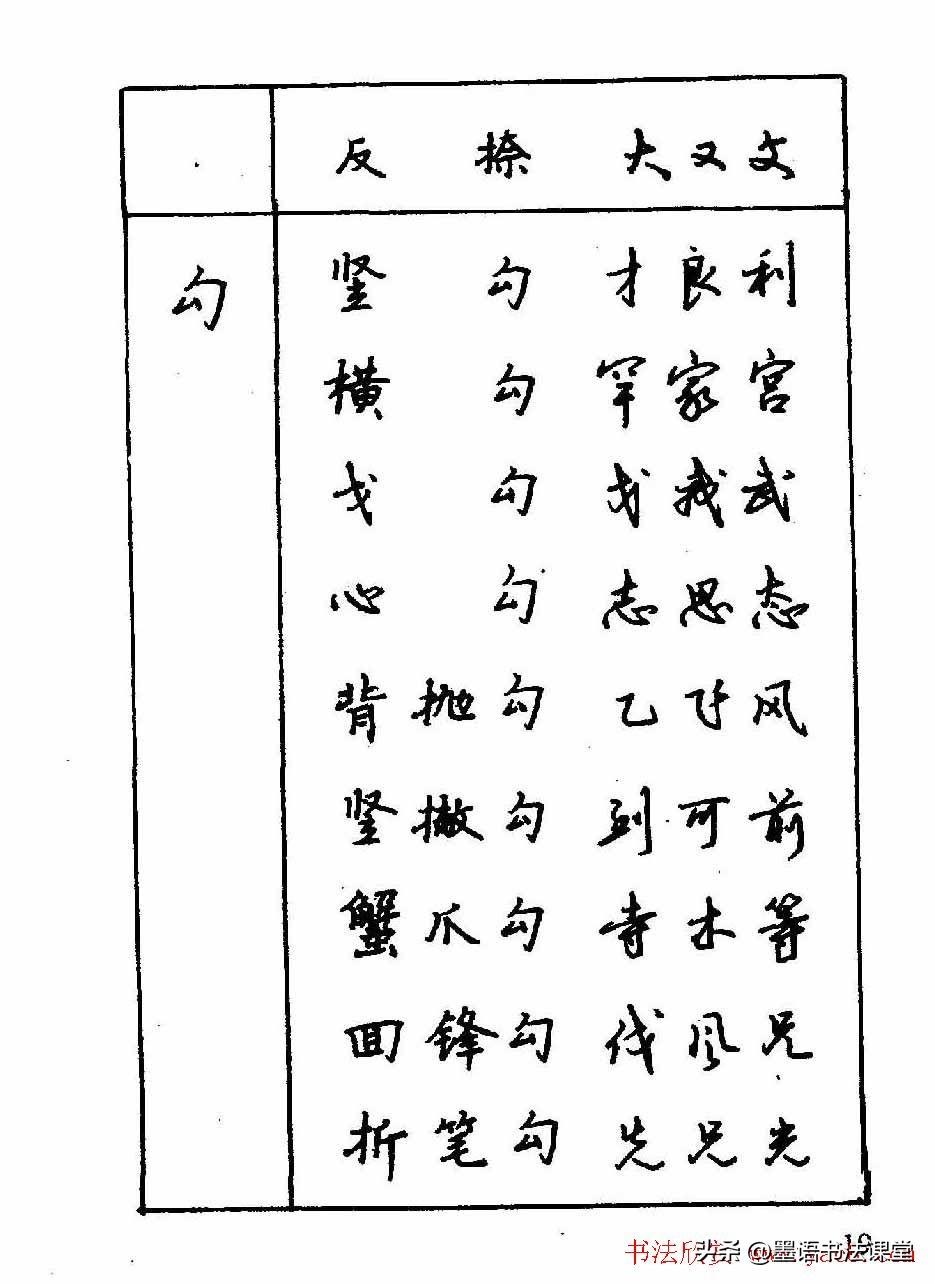 反捺 大又文
勾 竖勾 才良利
横勾 罕家宫
戈勾 戈我武
心勾 志思态
背抛勾 乙飞风
竖撇勾 到可前
蟹爪勾 寺木等
回锋勾 伐风兄
折笔勾 先兄光
头条 @墨语书法课堂
书法欣赏